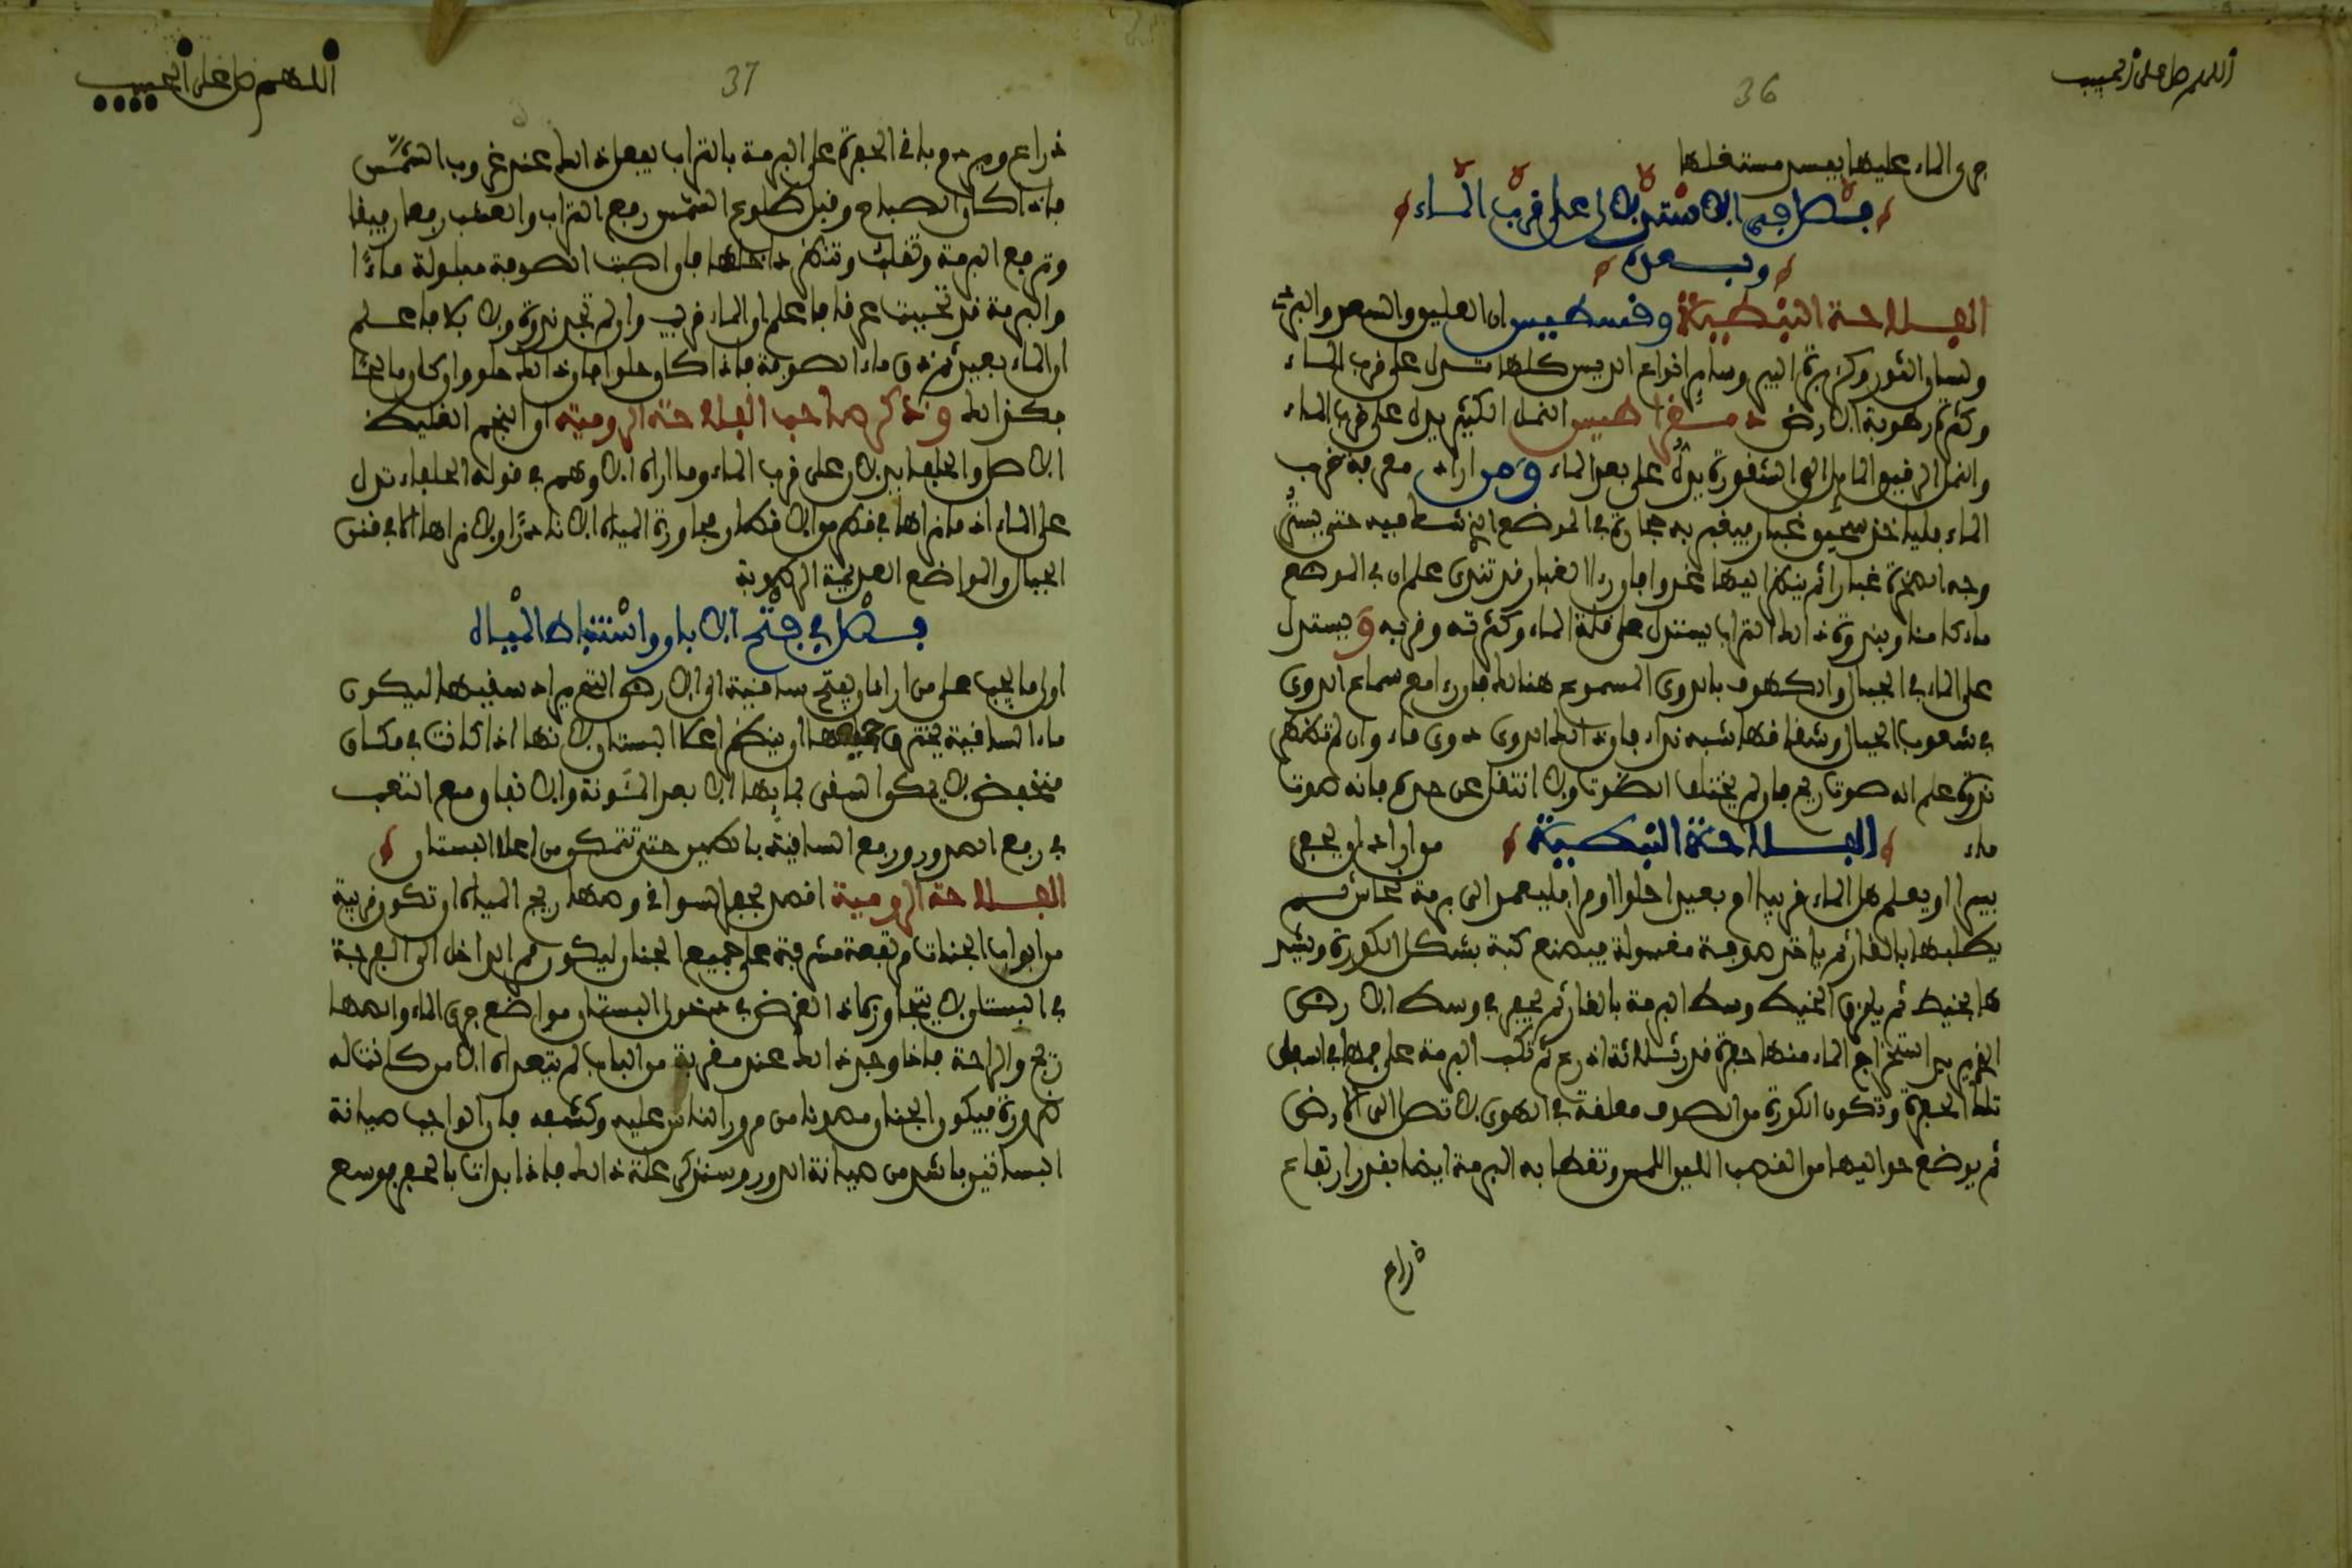 اللهم صل على الحبيب
36
جرى الماء عليها يفسد مستغلها
فصل في الاستدلال على قرب الماء
وبعده
الفلاحة النبطية وقسطيس ان العليق والسعد والبردي
ولسان الثور وكزبرة البير وساير انواع الديس كلها تدل على قرب الماء
وكثرة رطوبة الارض دمقراطيس النمل الكثير يدل على قرب الماء
والنمل الرقيق المايل الى الشقورة يدل على بعد الماء ومن اراد معرفة قرب
الماء فلياخذ سحيق غبار فيقيم به حجارة في الموضع الذي شك فيه حتى يستر
وجه الصخرة غبارا ثم ينظر اليها غدوا فان راى الغبار قد تندى علم ان في الموضع
ماء كامنا وبندوة ذالك التراب يستدل على قلة الماء وكثرته وقربه ويستدل
على الماء في الجبال والكهوف بالدوي المسموع هنالك فان راى مع سماع الدوي
في شعوب الجبال وشقاقها شبه نداء فان ذالك الدوي دوي ماء وان لم تظهر
ندوة علم انه صوت ريح فان لم يختلف الصوت ولا انتقل عن حده فانه صوت
ماء الفلاحة النبطية من اراد ان يحفر
بيرا او يعلم هل الماء قريبا او بعيدا حلوا او مرا فليعمد الى برمة نحاس ثم
يطليها بالقار ثم ياخذ صوفة مغسولة فيصنع كبة بشكل الكورة ويشد
ها بخيط ثم يلزق الخيط وسط البرمة بالقار ثم يحفر في وسط الارض
الذي يريد استخراج الماء منها حفرة قدر ثلاثة اذرع ثم تكب البرمة على فمها في اسفل
تلك الحفرة وتكون الكورة من الصوف معلقة في الهوى لا تصل الى الارض
ثم يوضع حواليها من العشب اللين اللمس وتغطى به البرمة ايضا بقدر ارتفاع
ذراع
اللهم صل على الحبيب
37
ذراع ويردم باقي الحفرة على البرمة بالتراب يفعل ذالك عند غروب الشمس
فاذا كان الصباح وقبل طلوع الشمس رفع التراب والعشب رفعا رفيقا
وترفع البرمة وتقلب وتنظر داخلها فان اصبت الصوفة مبلولة ماءا
والبرمة قد تحببت عرقا فاعلم ان الماء قريب وان لم تجد ندوة ولا بلا فاعلم
ان الماء بعيد ثم ذق ماء الصوفة فاذا كان حلوا فان ذالك حلو وان كان مالحا
فكذالك وذكر صاحب الفلاحة الرومية ان النجم الغليظ
الاصل والحلفا يدلان على قرب الماء وما اراه الا وهم في قوله الحلفاء تدل
على الماء اذ ما نراها في قطر من الاقطار مجاورة المياه الا نادرا ولا نراها الا في قنن
الجبال والمواضع العديمة الرطوبة
فصل في فتح الابار واستنباط المياه
اول ما يجب على من اراد ان يفتح ساقية ان الارض التي يراد سقيها ليكون
ماء الساقية يخترق جميعها ان ينظر اعلا البستان لانها اذا كانت في مكان
منخفض لا يمكن السقي بمائها الا بعد المشونة والاتفاق مع التعب
في رفع الصدور ورفع الساقية بالطين حتى تتمكن من اعلا البستان
الفلاحة الرومية اقصد بحفر السواقي ومصاريح المياه ان تكون قريبة
من ابواب الجنات مرتفعة مشرفة على جميع الجنان ليكون قصد الداخل الى الفرجة
في البستان لا يتجاوزها اذ الغرض في دخول البستان مواضع جري الماء والمصا
ريح والراحة فاذا وجد ذالك عند مقربة من الباب لم يتعداه الا من كانت له
ضرورة فيكون الجنان مصونا من مرور الناس عليه وكشفه فان الواجب صيانة
البساتين باشد من صيانة الدور وسنذكر علة ذالك فاذا بدات بالحفر فوسع